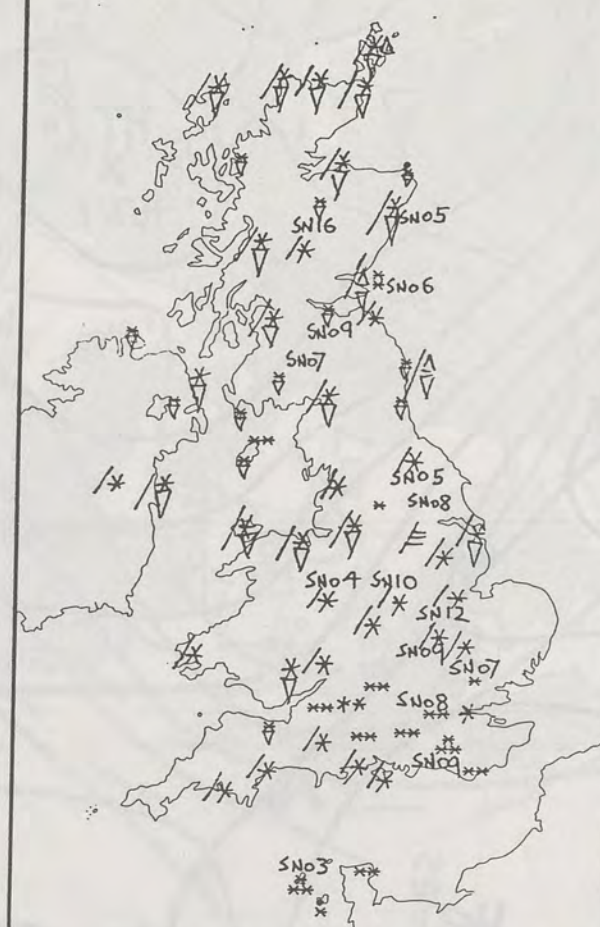 SN05
SN16
SN06
SN09
SN07
SN05
SN08
SN04 SN10
SN12
SN09
SN07
SN08
SN09
SN03